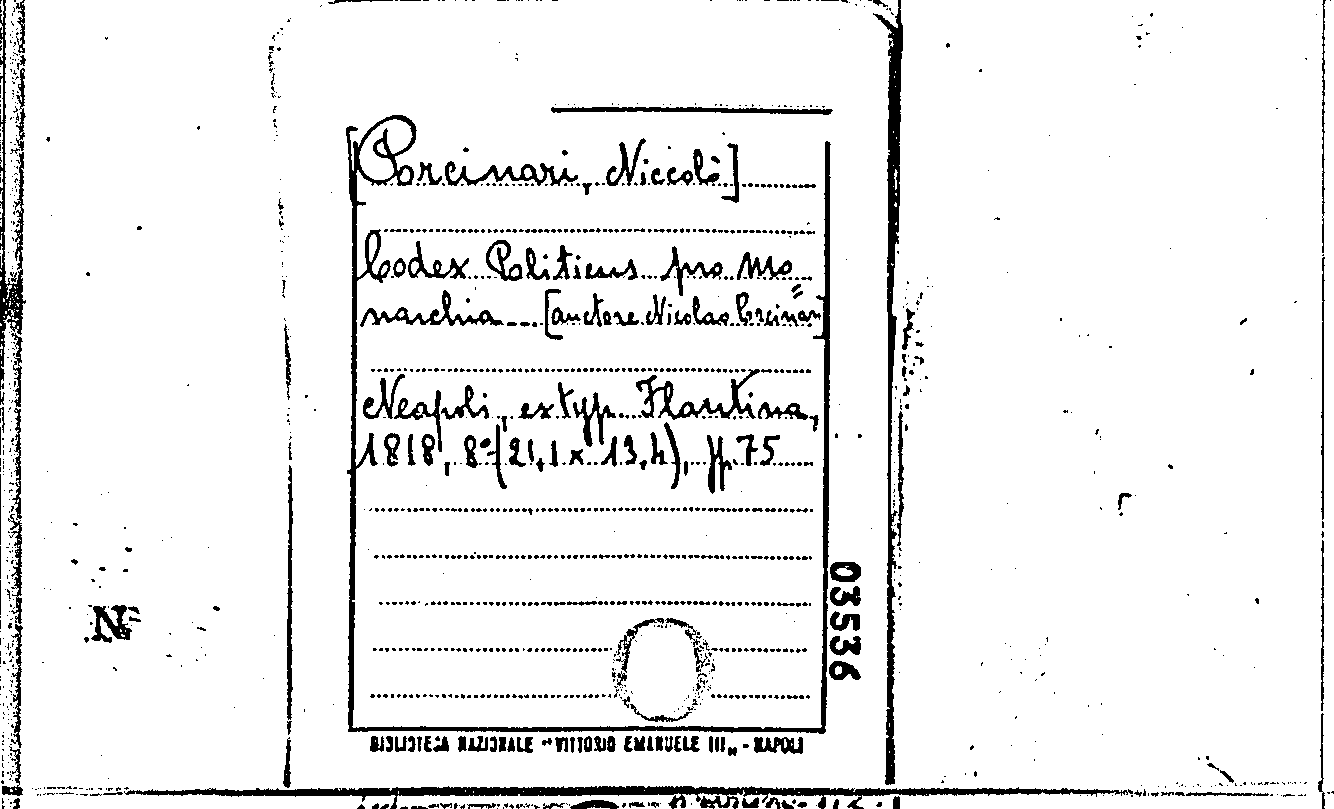 [Porcinari, Niccolò]
Codex Politicus pro Mo=
narchia... [auctore Nicolao Porcinari]
Neapoli, ex typ. Flautina,
1818, 8° (21,1 x 13,4), pp. 75
03536
N
BIBLIOTECA NAZIONALE "VITTORIO EMANUELE III„ - NAPOLI